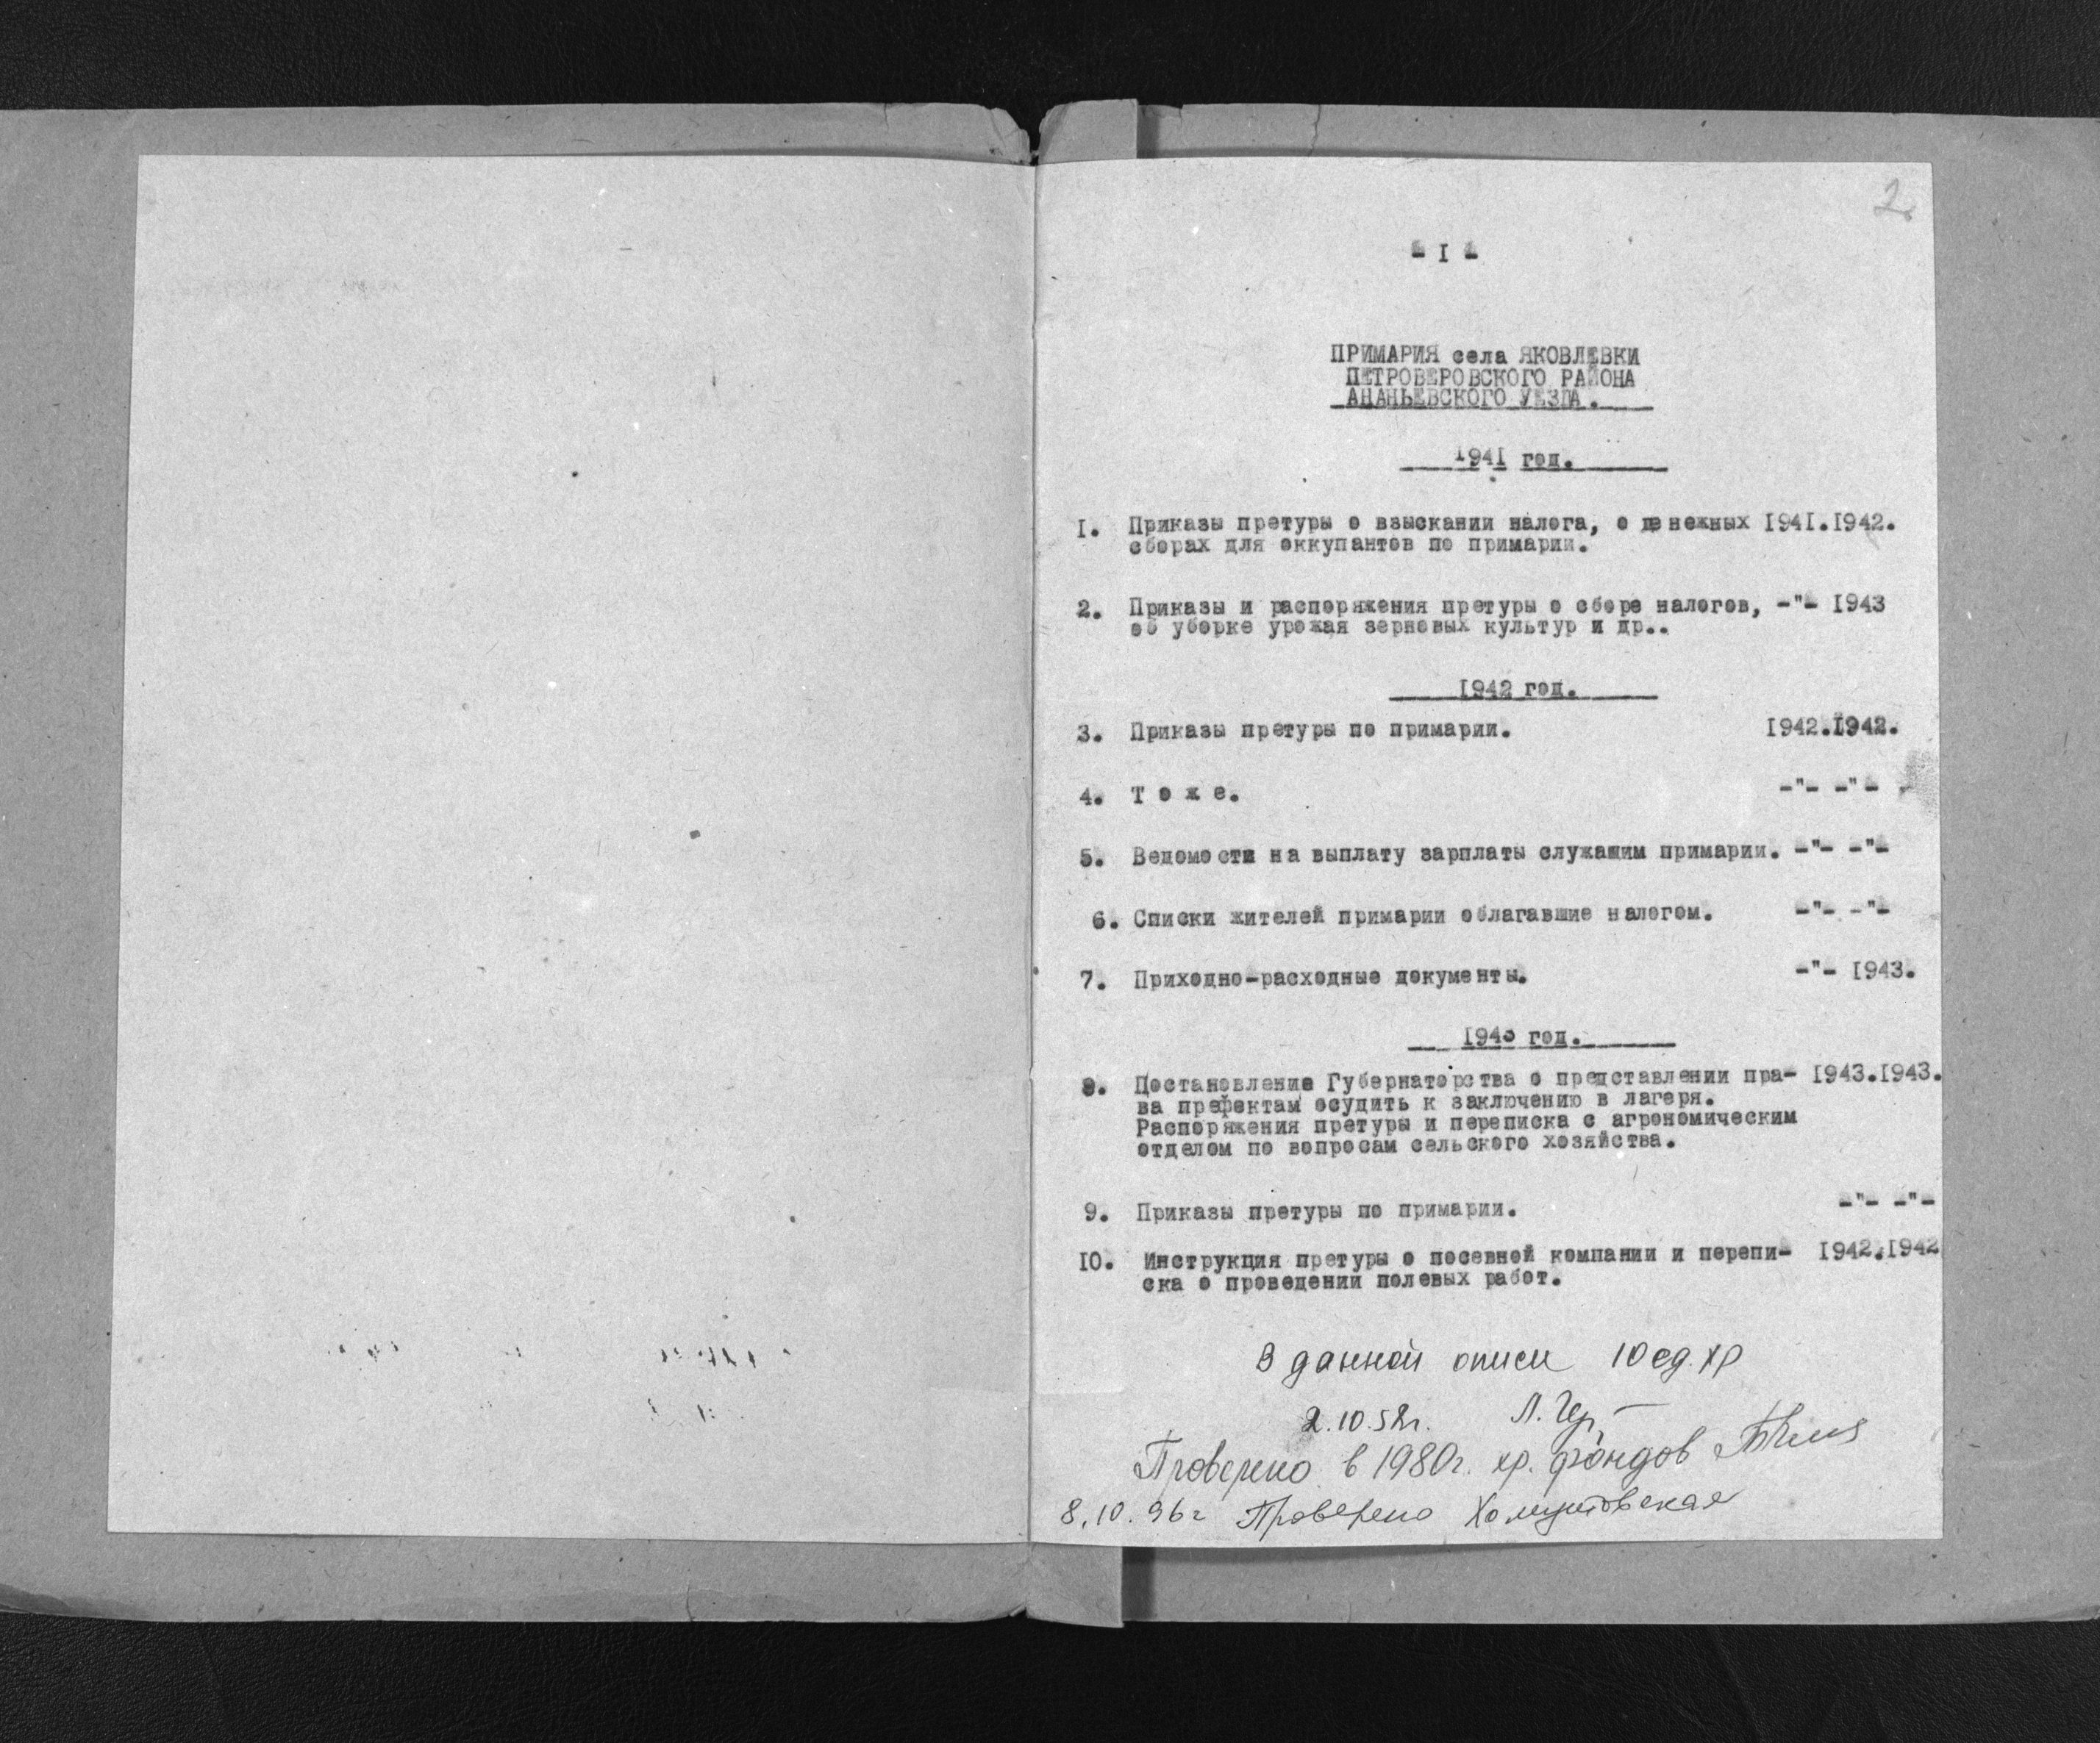 2.
- I -
ПРИМАРИЯ села ЯКОВЛЕВКИ
ПЕТРОВЕРОВСКОГО РАЙОНА
АНАНЬЕВСКОГО УЕЗДА.
1941 год.
I. Приказы претуры о взыскании налога, о денежных I94I.I942.
сборах для оккупантов по примарии.
2. Приказы и распоряжения претуры о сборе налогов, -"- I943
об уборке урожая зерновых культур и др..
I942 год.
3. Приказы претуры по примарии. I942.I942.
4. Т о ж е. -"- -"-
5. Ведомости на выплату зарплаты служащим примарии. -"- -"-
6. Списки жителей примарии облагавшие налогом. -"- -"-
7. Приходно-расходные документы. -"- I943.
I943 год.
8. Постановление Губернаторства о представлении пра- I943.I943.
ва префектам осудить к заключению в лагеря.
Распоряжения претуры и переписка с агрономическим
отделом по вопросам сельского хозяйства.
9. Приказы претуры по примарии. -"- -"-
IO. Инструкция претуры о посевной компании и перепи- I942.I942
ска о проведении полевых работ.
В данной описи 10 ед. хр
2.10.58г. Л.
Проверено в 1980г. хр. фондов
8.10.96г Проверено Хомутовская